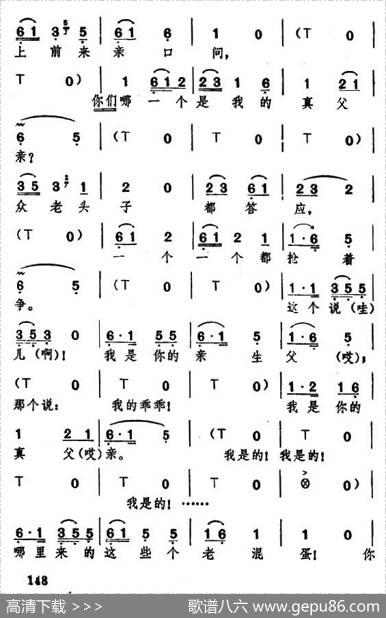 6 1 3 2/ 5 6 1 6 1 0 (T 0
上前来亲口问,
T 0) 1 6 1 2 2 3 1 6 1 2 1
你们哪一个是我的真父
6 5 (T 0 T 0 T 0
亲?
3 5 3 2/ 1 2 0 2 3 6 1 2 3 2
众老头子都答应,
(T 0) 6 1 2 6 1 2 1 1·6 5
一个一个都抢着
6 5 (T 0 T 0) 1·1 3 5 5
争。这个说(哇)
3 5 3 0 6·1 5 5 6 1 6·1 5
儿(啊)! 我是你的亲生父(哎);
(T 0 T 0 T 0) 1·2 1 6
那个说: 我的乖乖! 我是你的
1 2 1 6·1 5 (T 0 T 0
真父(哎)亲。 我是的! 我是的!
T 0 T 0 T 0 ⊗ 0)
我是的! ……
6·1 3 5 5 6 1 5 1 6 1 1 0
哪里来的这些个老混蛋! 你
148
高清下载 >>> 歌谱八六 www.gepu86.com